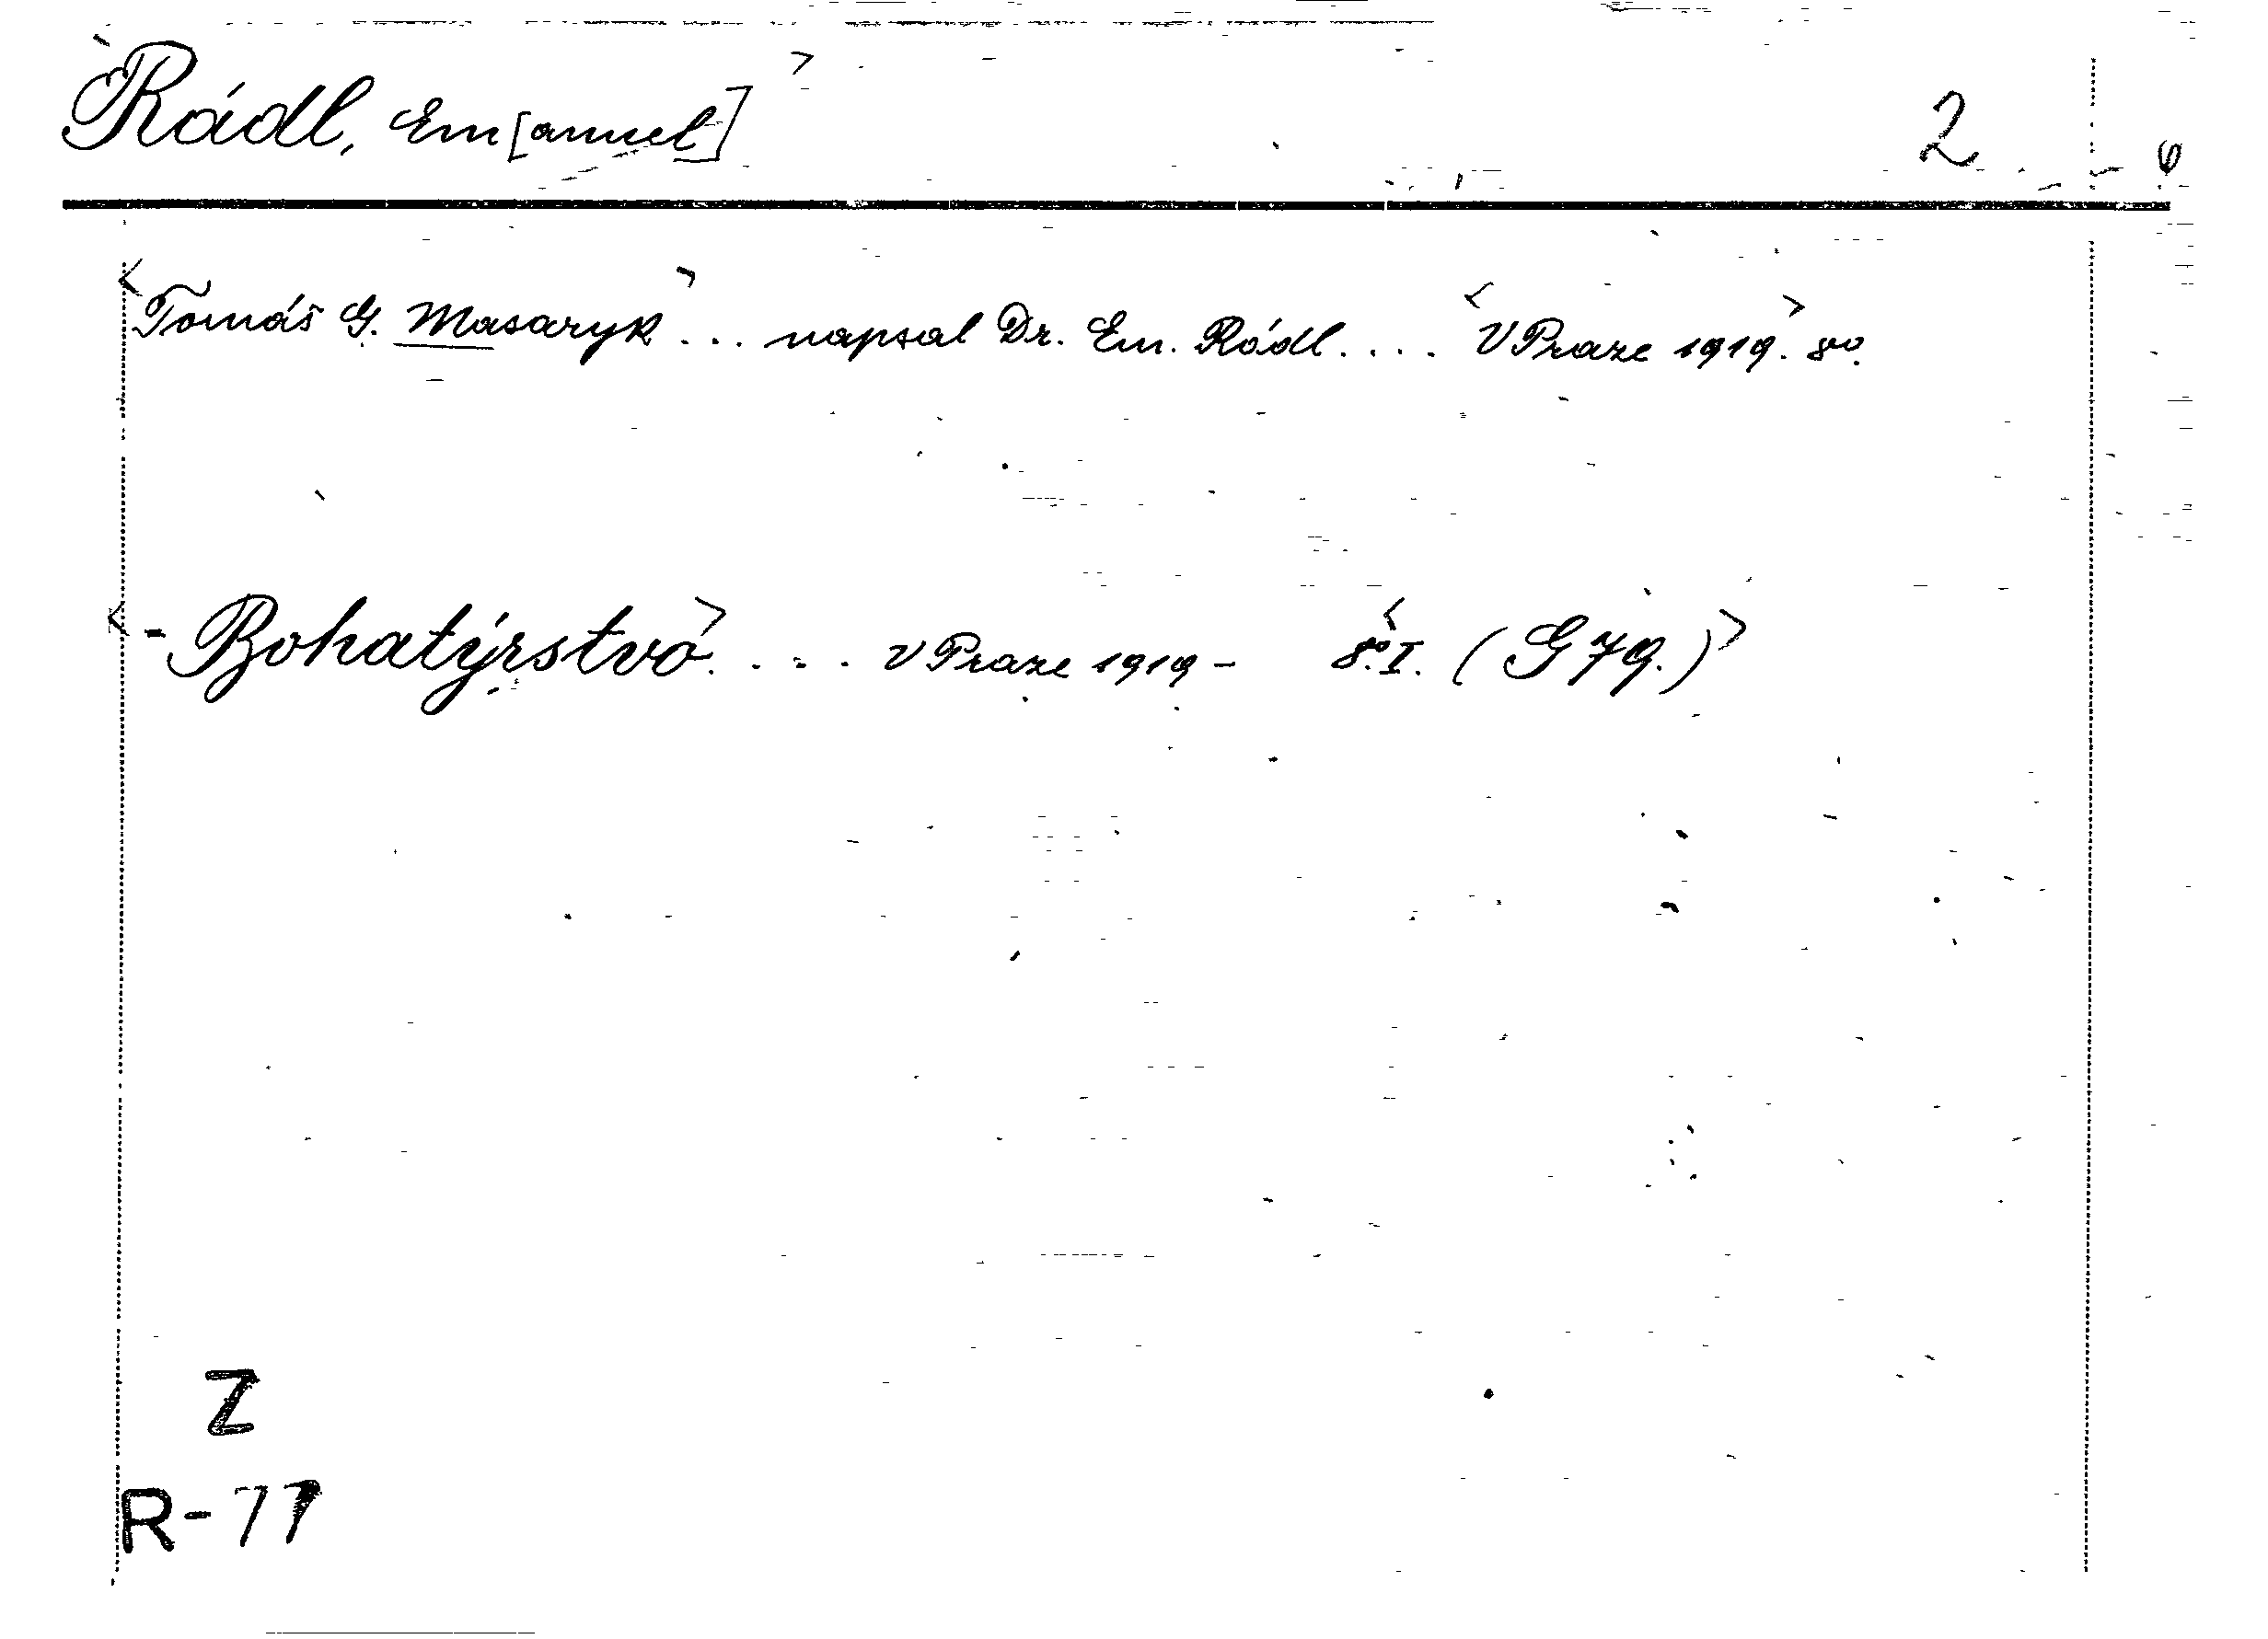 Rádl, Em[anuel] 2
<Tomáš G. Masaryk> ... napsal Dr. Em. Rádl.... <V Praze 1919.> 8vo.
<- Bohatýrstvo> .... v Praze 1919 - <8o. I. (G 79.)>
Z
R-77